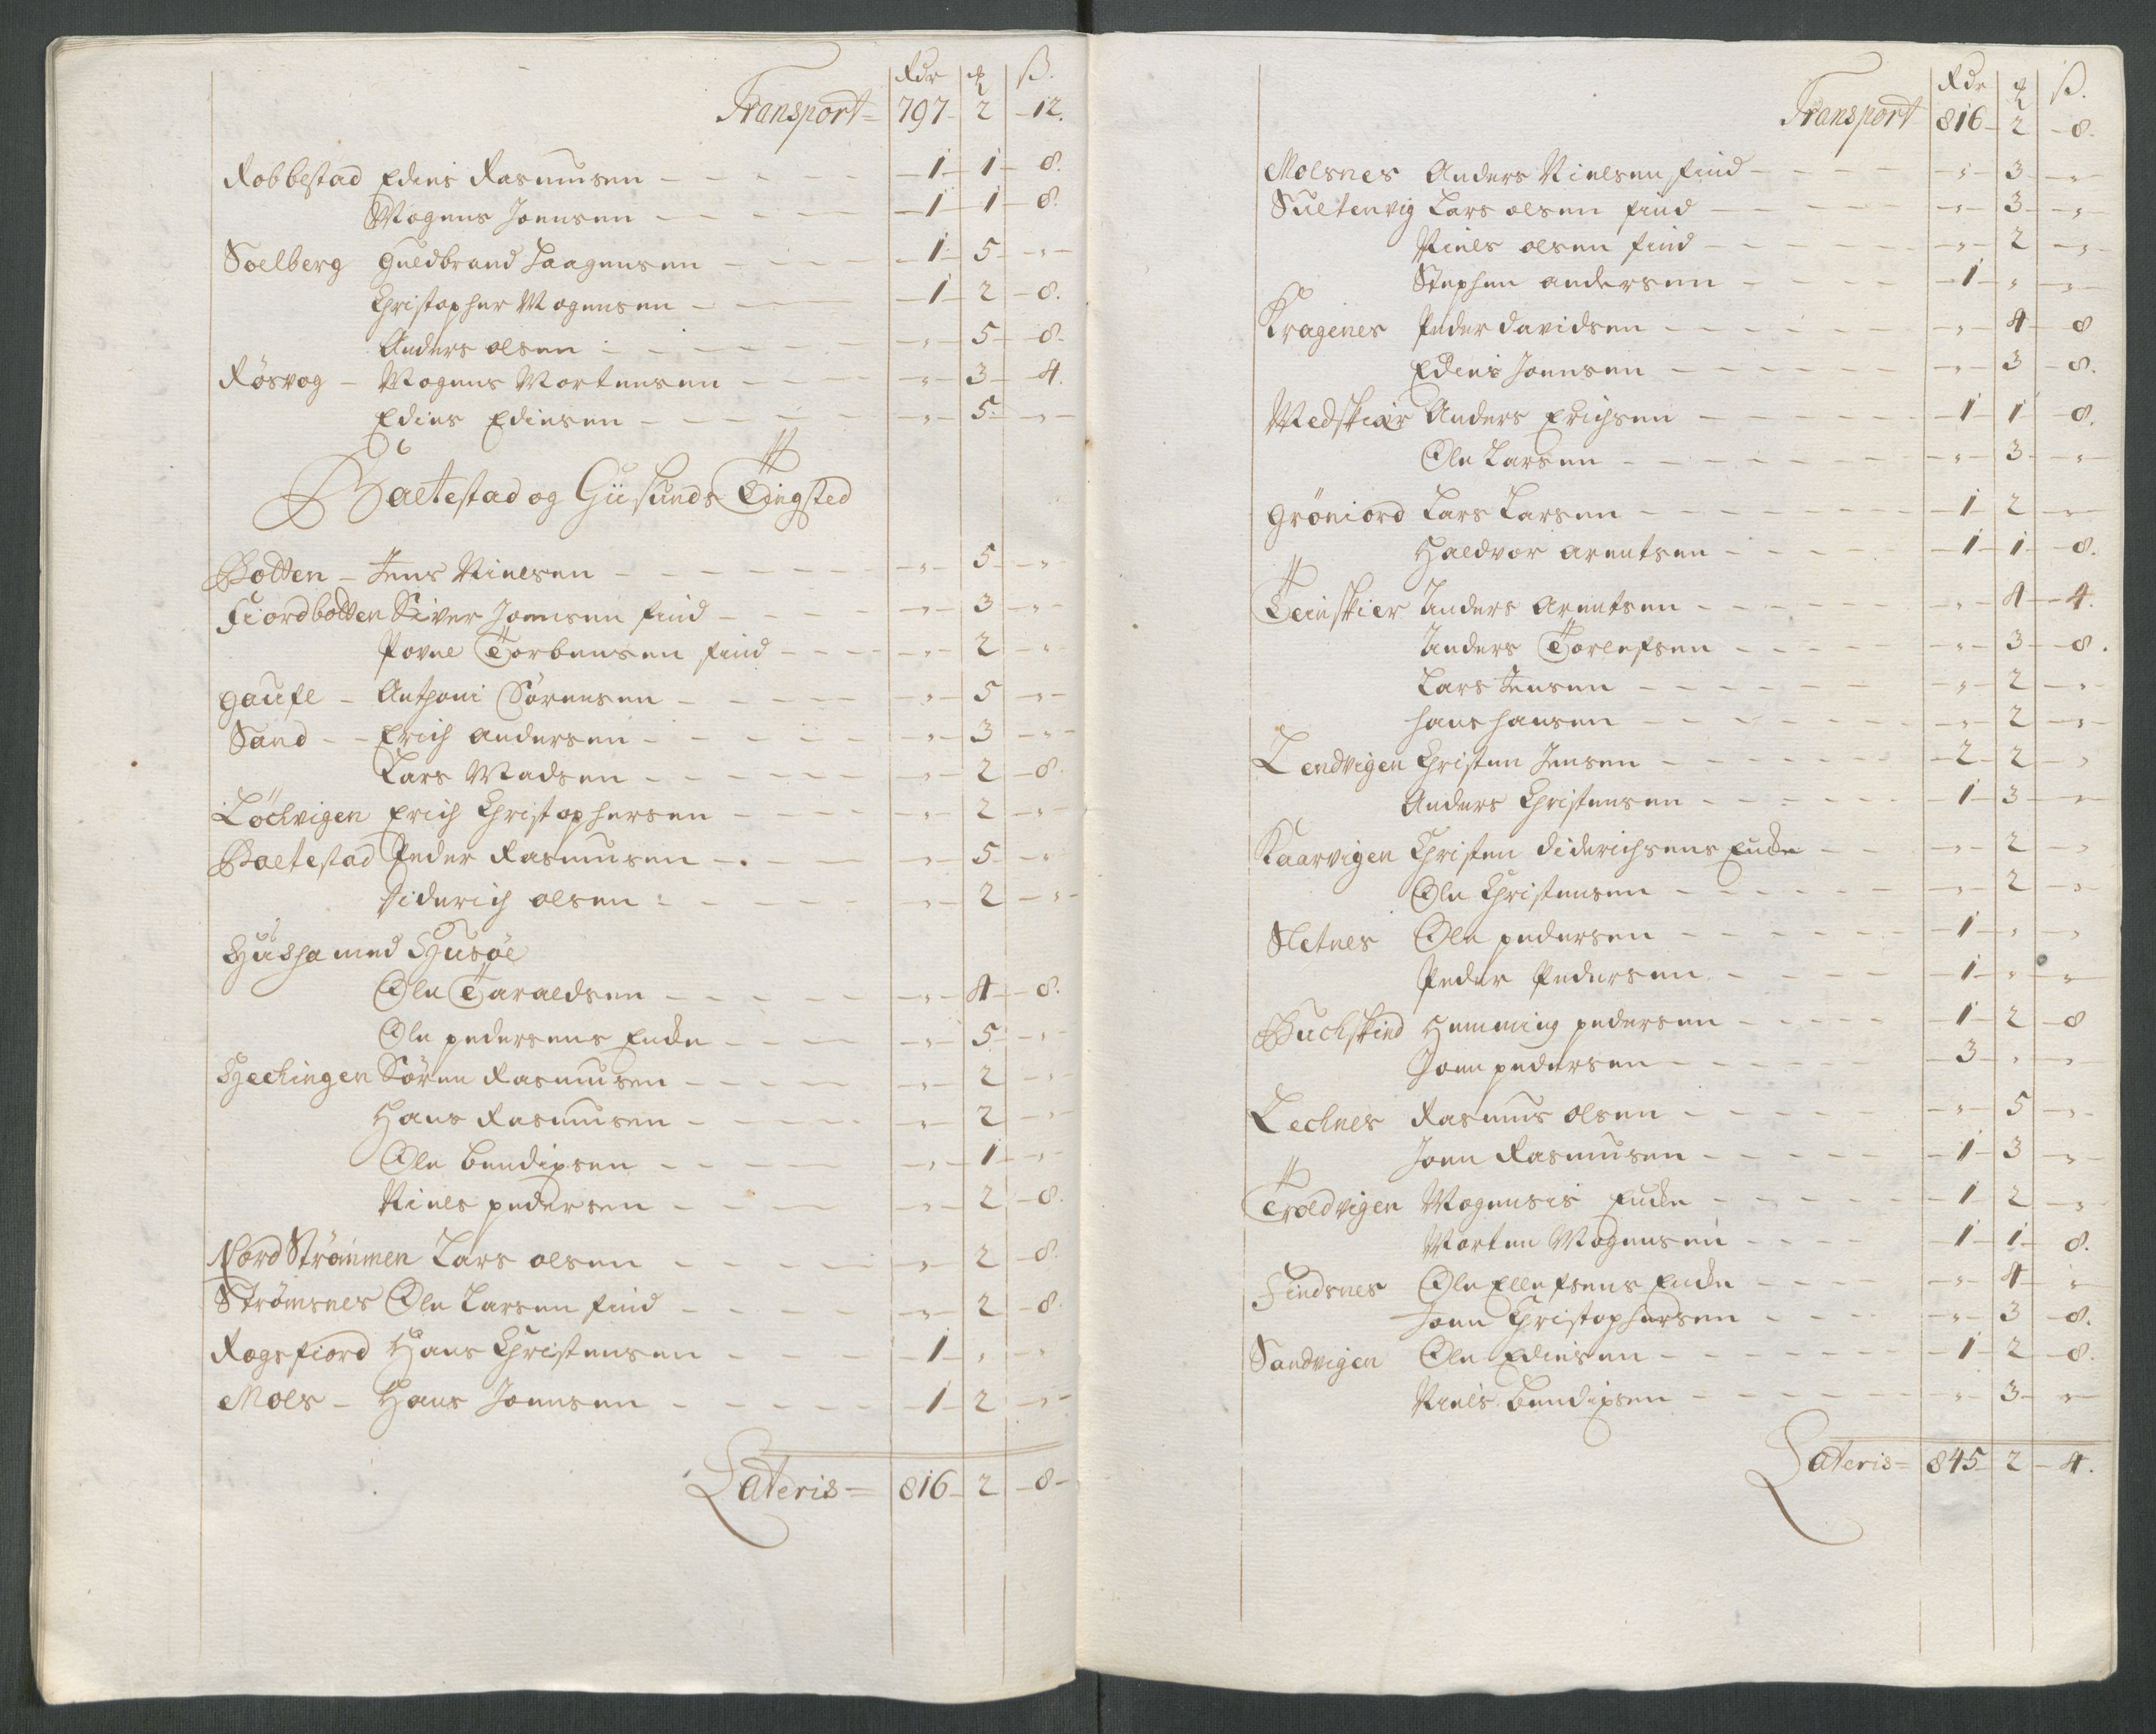 Rdr ꝗ ß.
Transport = 797 - 2 - 12.
Robbestad Edies Rasmusen - - - - - 1 - 1 - 8.
Mogens Joensen - - - - - 1 - 1 - 8.
Soelberg Guldbrand Laagensen - - - 1 - 5 - „ -
Christopher Mogensen - - - 1 - 2 - 8.
Anders olsen - - - - - „ - 5 - 8.
Røsvog - Mogens Mortensen - - - - „ - 3 - 4.
Edies Ediesen - - - - „ - 5 - „ -
Baltestad og Giisunds Tingsted
Botten - Jens Nielsen - - - - - - „ - 5 - „ -
Fiordbotten Siver Joensen find - - - - „ - 3 - „ -
Povel Torbensen find - - - - „ - 2 - „
Gaufe - Anthoni Sørensen - - - - - „ - 5 - „ -
Sand - - Erich Andersen - - - - - „ - 3 - „ -
Lars Madsen - - - - - - „ - 2 - 8.
Löchvigen Erich Christophersen - - - - „ - 2 - „
Baltestad Peder Rasmusen - - - - „ - 5 - „
Diderich olsen - - - - - „ - 2 - „ -
Husha med Husøe
Ole Taraldsen - - - - - „ - 4 - 8.
Ole pedersens Encke - - - - „ - 5 - „
Hechingen Søren Rasmusen - - - - - „ - 2 - „
Hans Rasmusen - - - - - „ - 2 - „
Ole bendixsen - - - - „ - 1 - „
Niels pedersen - - - - „ - 2 - 8.
Nord Strømmen Lars olsen - - - - - „ - 2 - 8.
Strømsnes Ole Larsen find - - - - - „ - 2 - 8
Rogsfiord Hans Christensen - - - - 1 - „ - „
Mols - Hans Joensen - - - - - 1 - 2 - „ -
Lateris = 816 - 2 - 8 -
Rdr ꝗ ß.
Transport 816 - 2 - 8.
Molsnes Anders Nielsen find - - - - „ - 3 - „
Sultenvig Lars olsen find - - - - - „ - 3 - „ -
Niels olsen find - - - - - - „ - 2 - „ -
Stephen andersen - - - - 1 - „ - „ -
Kragenes Peder davidsen - - - - - „ - 4 - 8
Edies Joensen - - - - - - „ - 3 - 8.
Medskiær Anders Erichsen - - - - - 1 - 1 - 8.
Ole Larsen - - - - - - - „ - 3 - „ -
Grøniord Lars Larsen - - - - - - 1 - 2 - „ -
Haldvor arentsen - - - - 1 - 1 - 8.
Teinskier Anders Arentsen - - - - - „ - 4 - 4.
Anders Torlefsen - - - - „ - 3 - 8.
Lars Jensen - - - - - - „ - 2 - „ -
hans hansen - - - - - - „ - 2 - „ -
Lendvigen Christen Jensen - - - - - - 2 - 2 - „
Anders Christensen - - - - - 1 - 3 - „ -
Kaarvigen Christen diderichsens Encke - - „ - 2 - „
Ole Christensen - - - - - „ - 2 - „
Sletnes Ole pedersen - - - - - - 1 - „ - „
Peder Pedersen - - - - 1 - „ - „
Buchskind Hemming pedersen - - - - - 1 - 2 - 8
Joen pedersen - - - - 3 - „ - „
Lechnes Rasmus olsen - - - - - „ - 5 - „ -
Joen Rasmusen - - - - - 1 - 3 - „ -
Troldvigen Mogensis Encke - - - - - 1 - 2 - „
Morten Mogensen - - - - 1 - 1 - 8.
Findsnes Ole Ellefsens Encke - - - - „ - 4 - „
Joen Christophersen - - - - „ - 3 - 8.
Sandvigen Ole Ediesen - - - - - - 1 - 2 - 8.
Niels bendixsen - - - - - - „ - 3 - „
Lateris = 845 - 2 - 4.